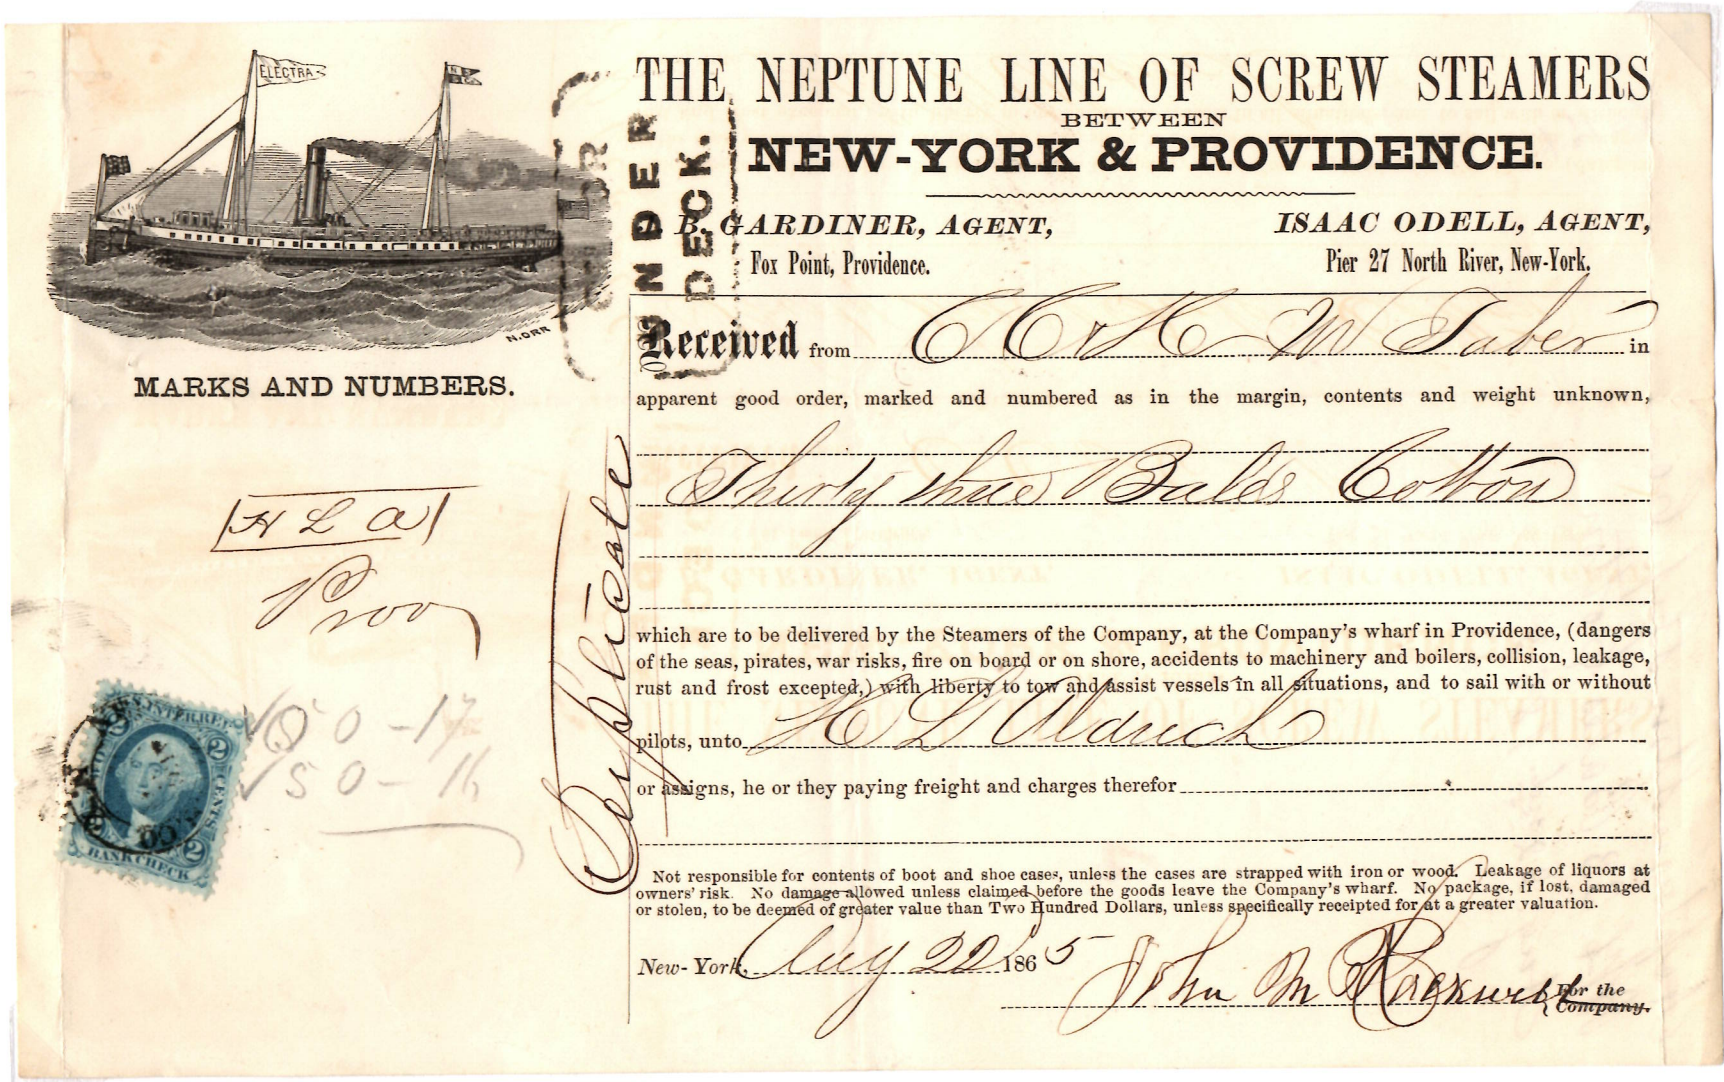 ELECTRA
THE NEPTUNE LINE OF SCREW STEAMERS
BETWEEN
NEW-YORK & PROVIDENCE.
B. GARDINER, AGENT,
Fox Point, Providence.
ISAAC ODELL, AGENT,
Pier 27 North River, New-York.
N. ORR
UNDER
DECK.
MARKS AND NUMBERS.
H L A
Prov
Duplicate
Received from C C & H M Taber in
apparent good order, marked and numbered as in the margin, contents and weight unknown,
Thirty three Bales Cotton
which are to be delivered by the Steamers of the Company, at the Company's wharf in Providence, (dangers
of the seas, pirates, war risks, fire on board or on shore, accidents to machinery and boilers, collision, leakage,
rust and frost excepted,) with liberty to tow and assist vessels in all situations, and to sail with or without
pilots, unto H L Aldrich
or assigns, he or they paying freight and charges therefor
50-17
50-16
U.S. INTER. REV.
2 2
CENTS
2 2
BANK CHECK
Not responsible for contents of boot and shoe cases, unless the cases are strapped with iron or wood. Leakage of liquors at
owners' risk. No damage allowed unless claimed before the goods leave the Company's wharf. No package, if lost, damaged
or stolen, to be deemed of greater value than Two Hundred Dollars, unless specifically receipted for at a greater valuation.
New-York, Aug 22 1865
John M Rockwell
For the
Company.